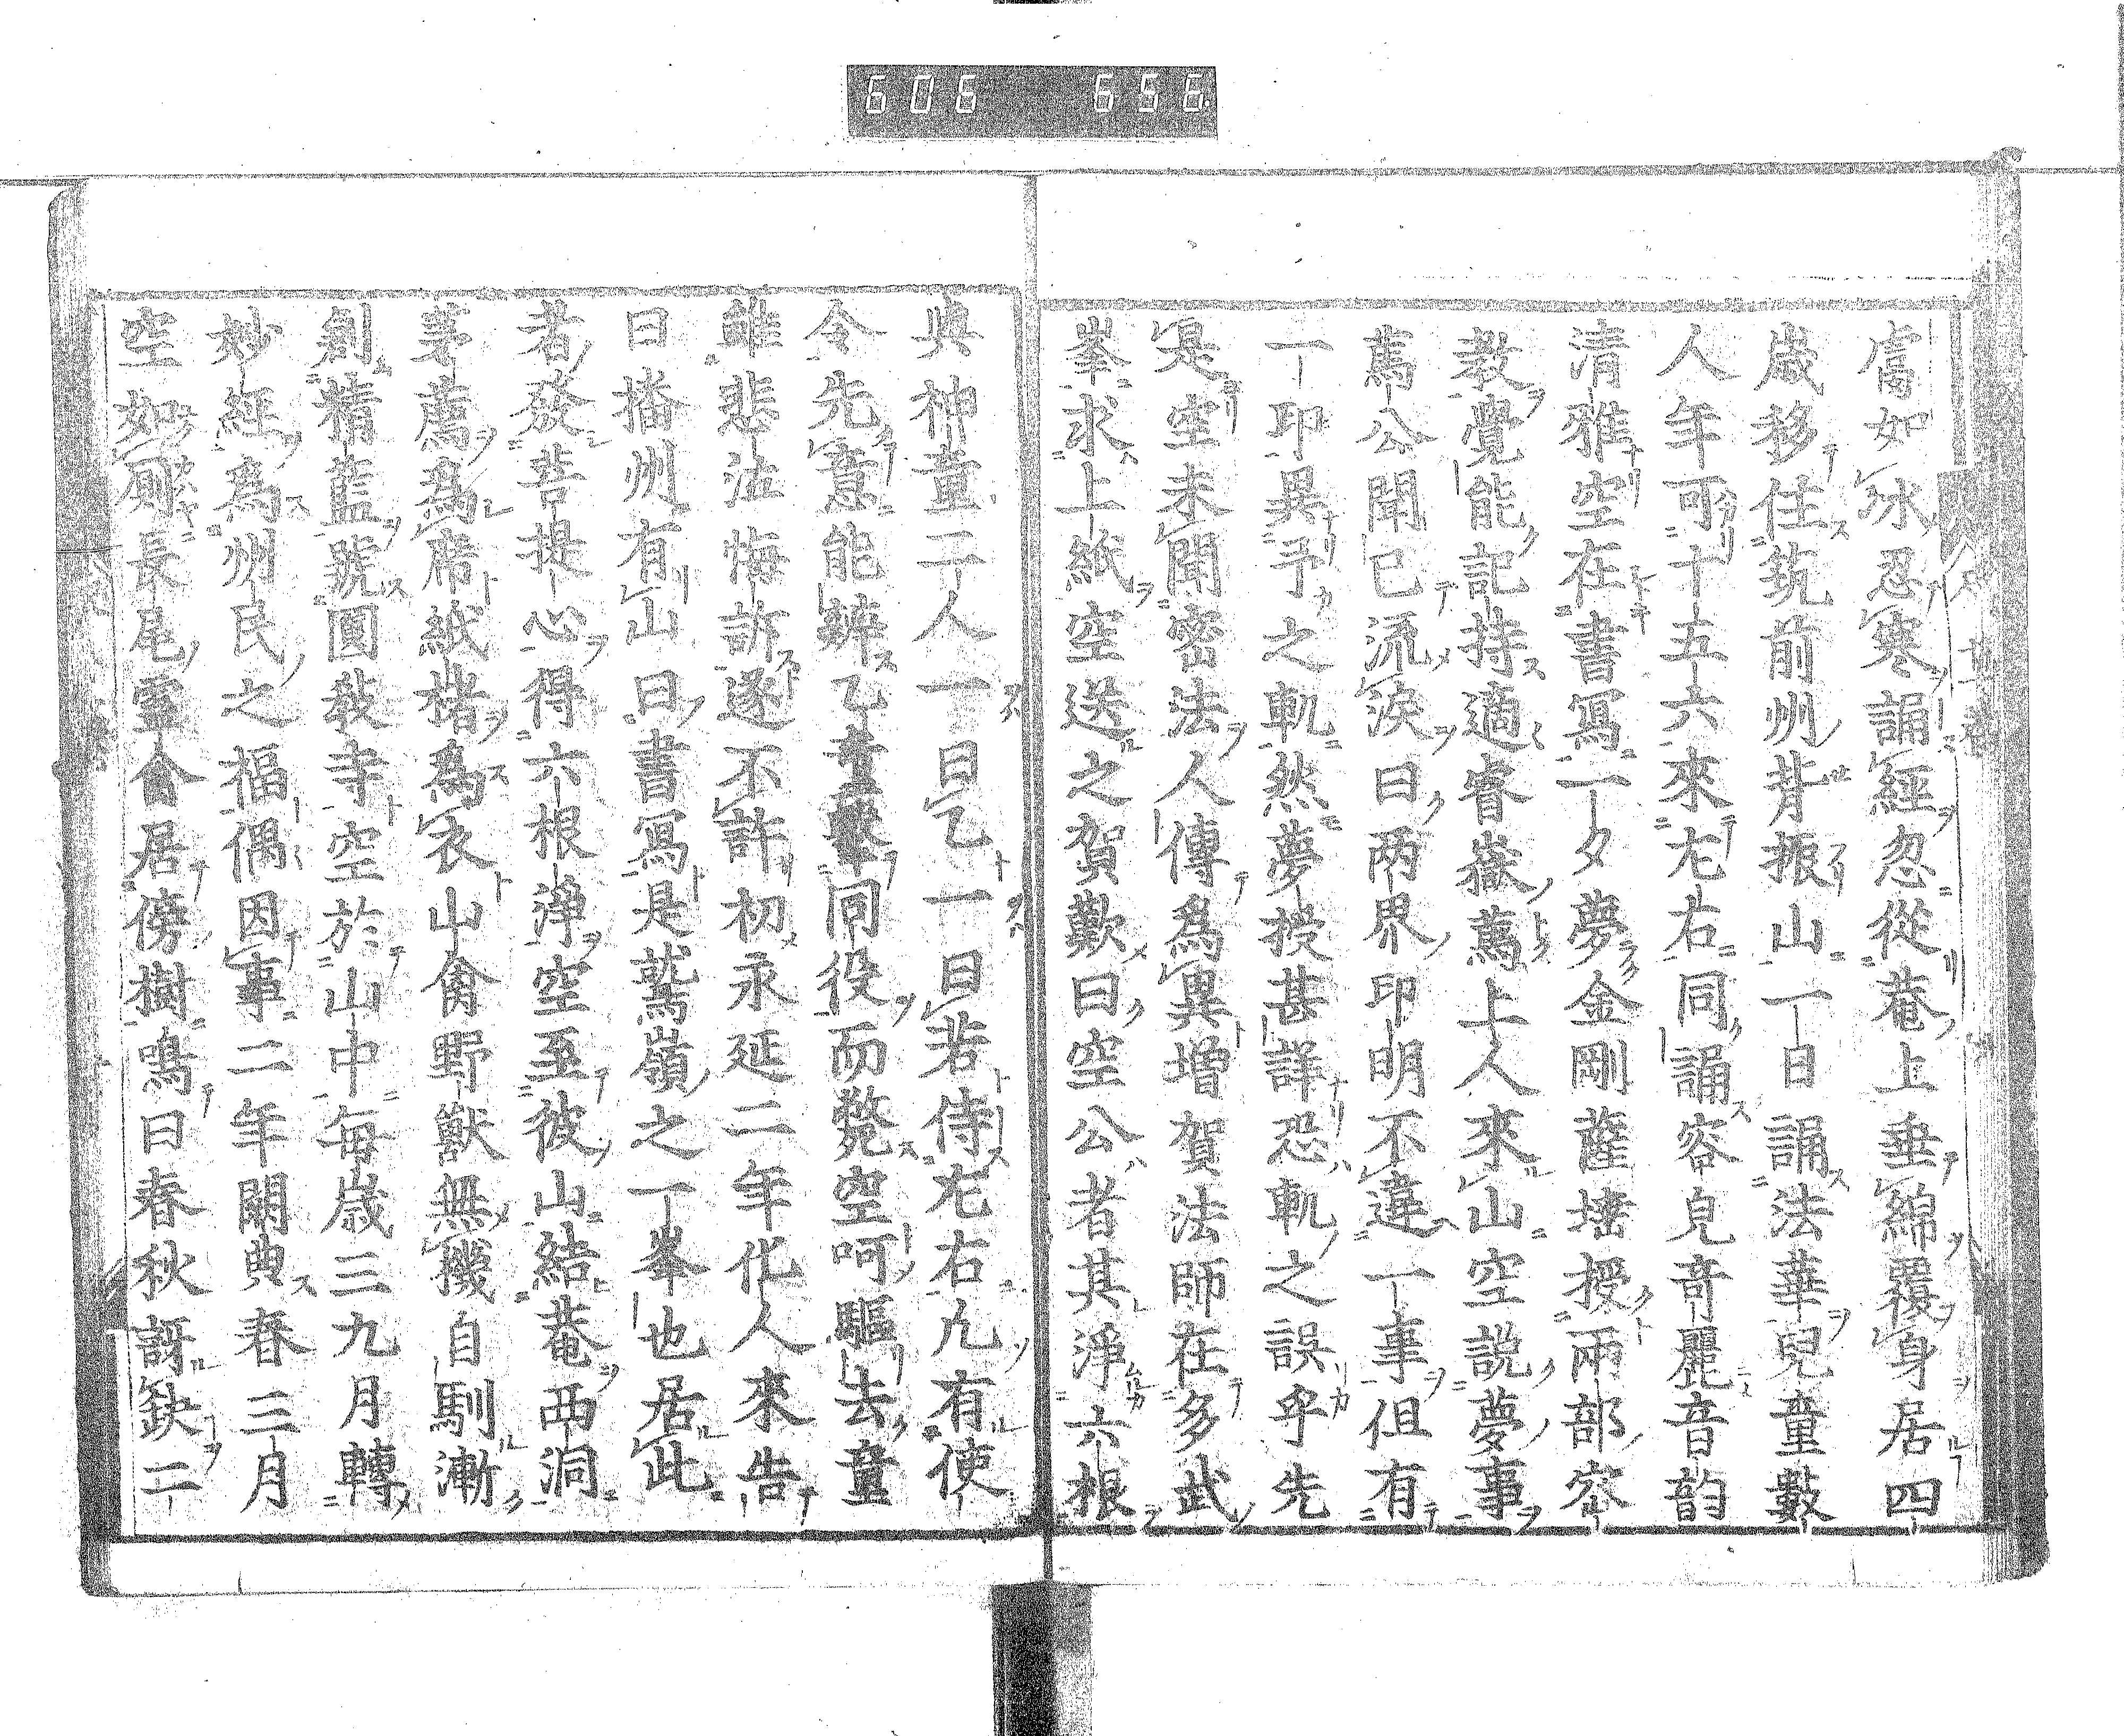 606 656
膚如冰忍寒誦經忽從菴上垂綿覆身居四
歲移住筑前州背振山一日誦法華兒童數
人年可十五六來左右同誦容皃奇麗音韵
清雅空在書寫一夕夢金剛薩埵授兩部密
教覺能記持適睿嶽蔫上人來山空說夢事
蔫公聞已流淚曰兩界印明不違一事但有
一印異予之軌然夢授甚詳恐軌之誤乎先
是空未聞密法人傳爲異增賀法師在多武
峯求上紙空送之賀歎曰空公者其淨六根
與神童二人一曰乙一曰若侍左右凡有使
令先意能辨乙童與同役而斃空呵驅去童
雖悲泣悔訴遂不許初永延二年化人來告
曰播州有山曰書寫是鷲嶺之一峯也居此
者發菩提心得六根淨空至彼山結菴西洞
茅薦爲席紙楮爲衣山禽野獸無機自馴漸
創精藍號圓教寺空於山中每歲三九月轉
妙經爲州民之福偶因事二年闕典春三月
空如厠長尾靈禽居傍樹鳴曰春秋訝缺二